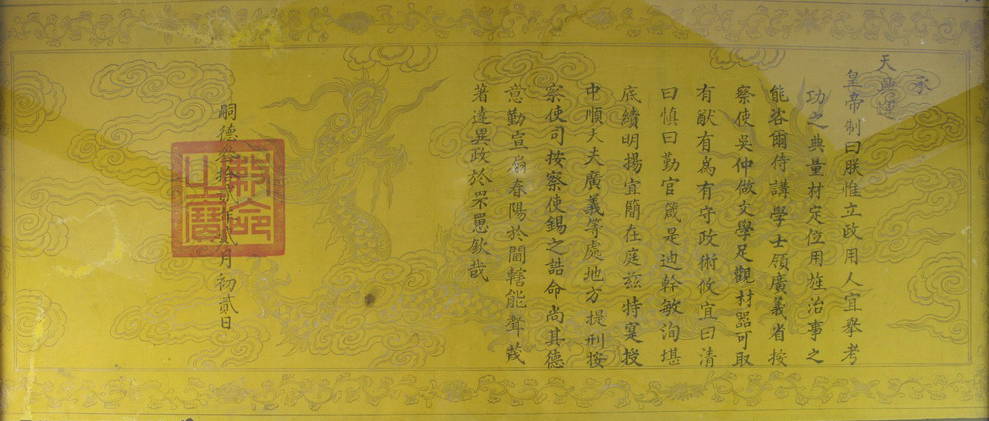 承
天興運
皇帝制曰朕惟立政用人宜舉考
功之典量材定位用旌治事之
能咨爾侍講學士領廣義省按
察使吳仲做文學足觀材器可取
有猷有為有守政術攸宜曰清
曰慎曰勤官箴是迪幹敏洵堪
底績明揚宜簡在庭茲特寔授
中順大夫廣義等處地方提刑按
察使司按察使錫之誥命尚其德
意勤宣扇春陽於閭轄能聲茂
著達異政於罘罳欽哉
嗣德叁拾貳年貳月初貳日
敕命之寶